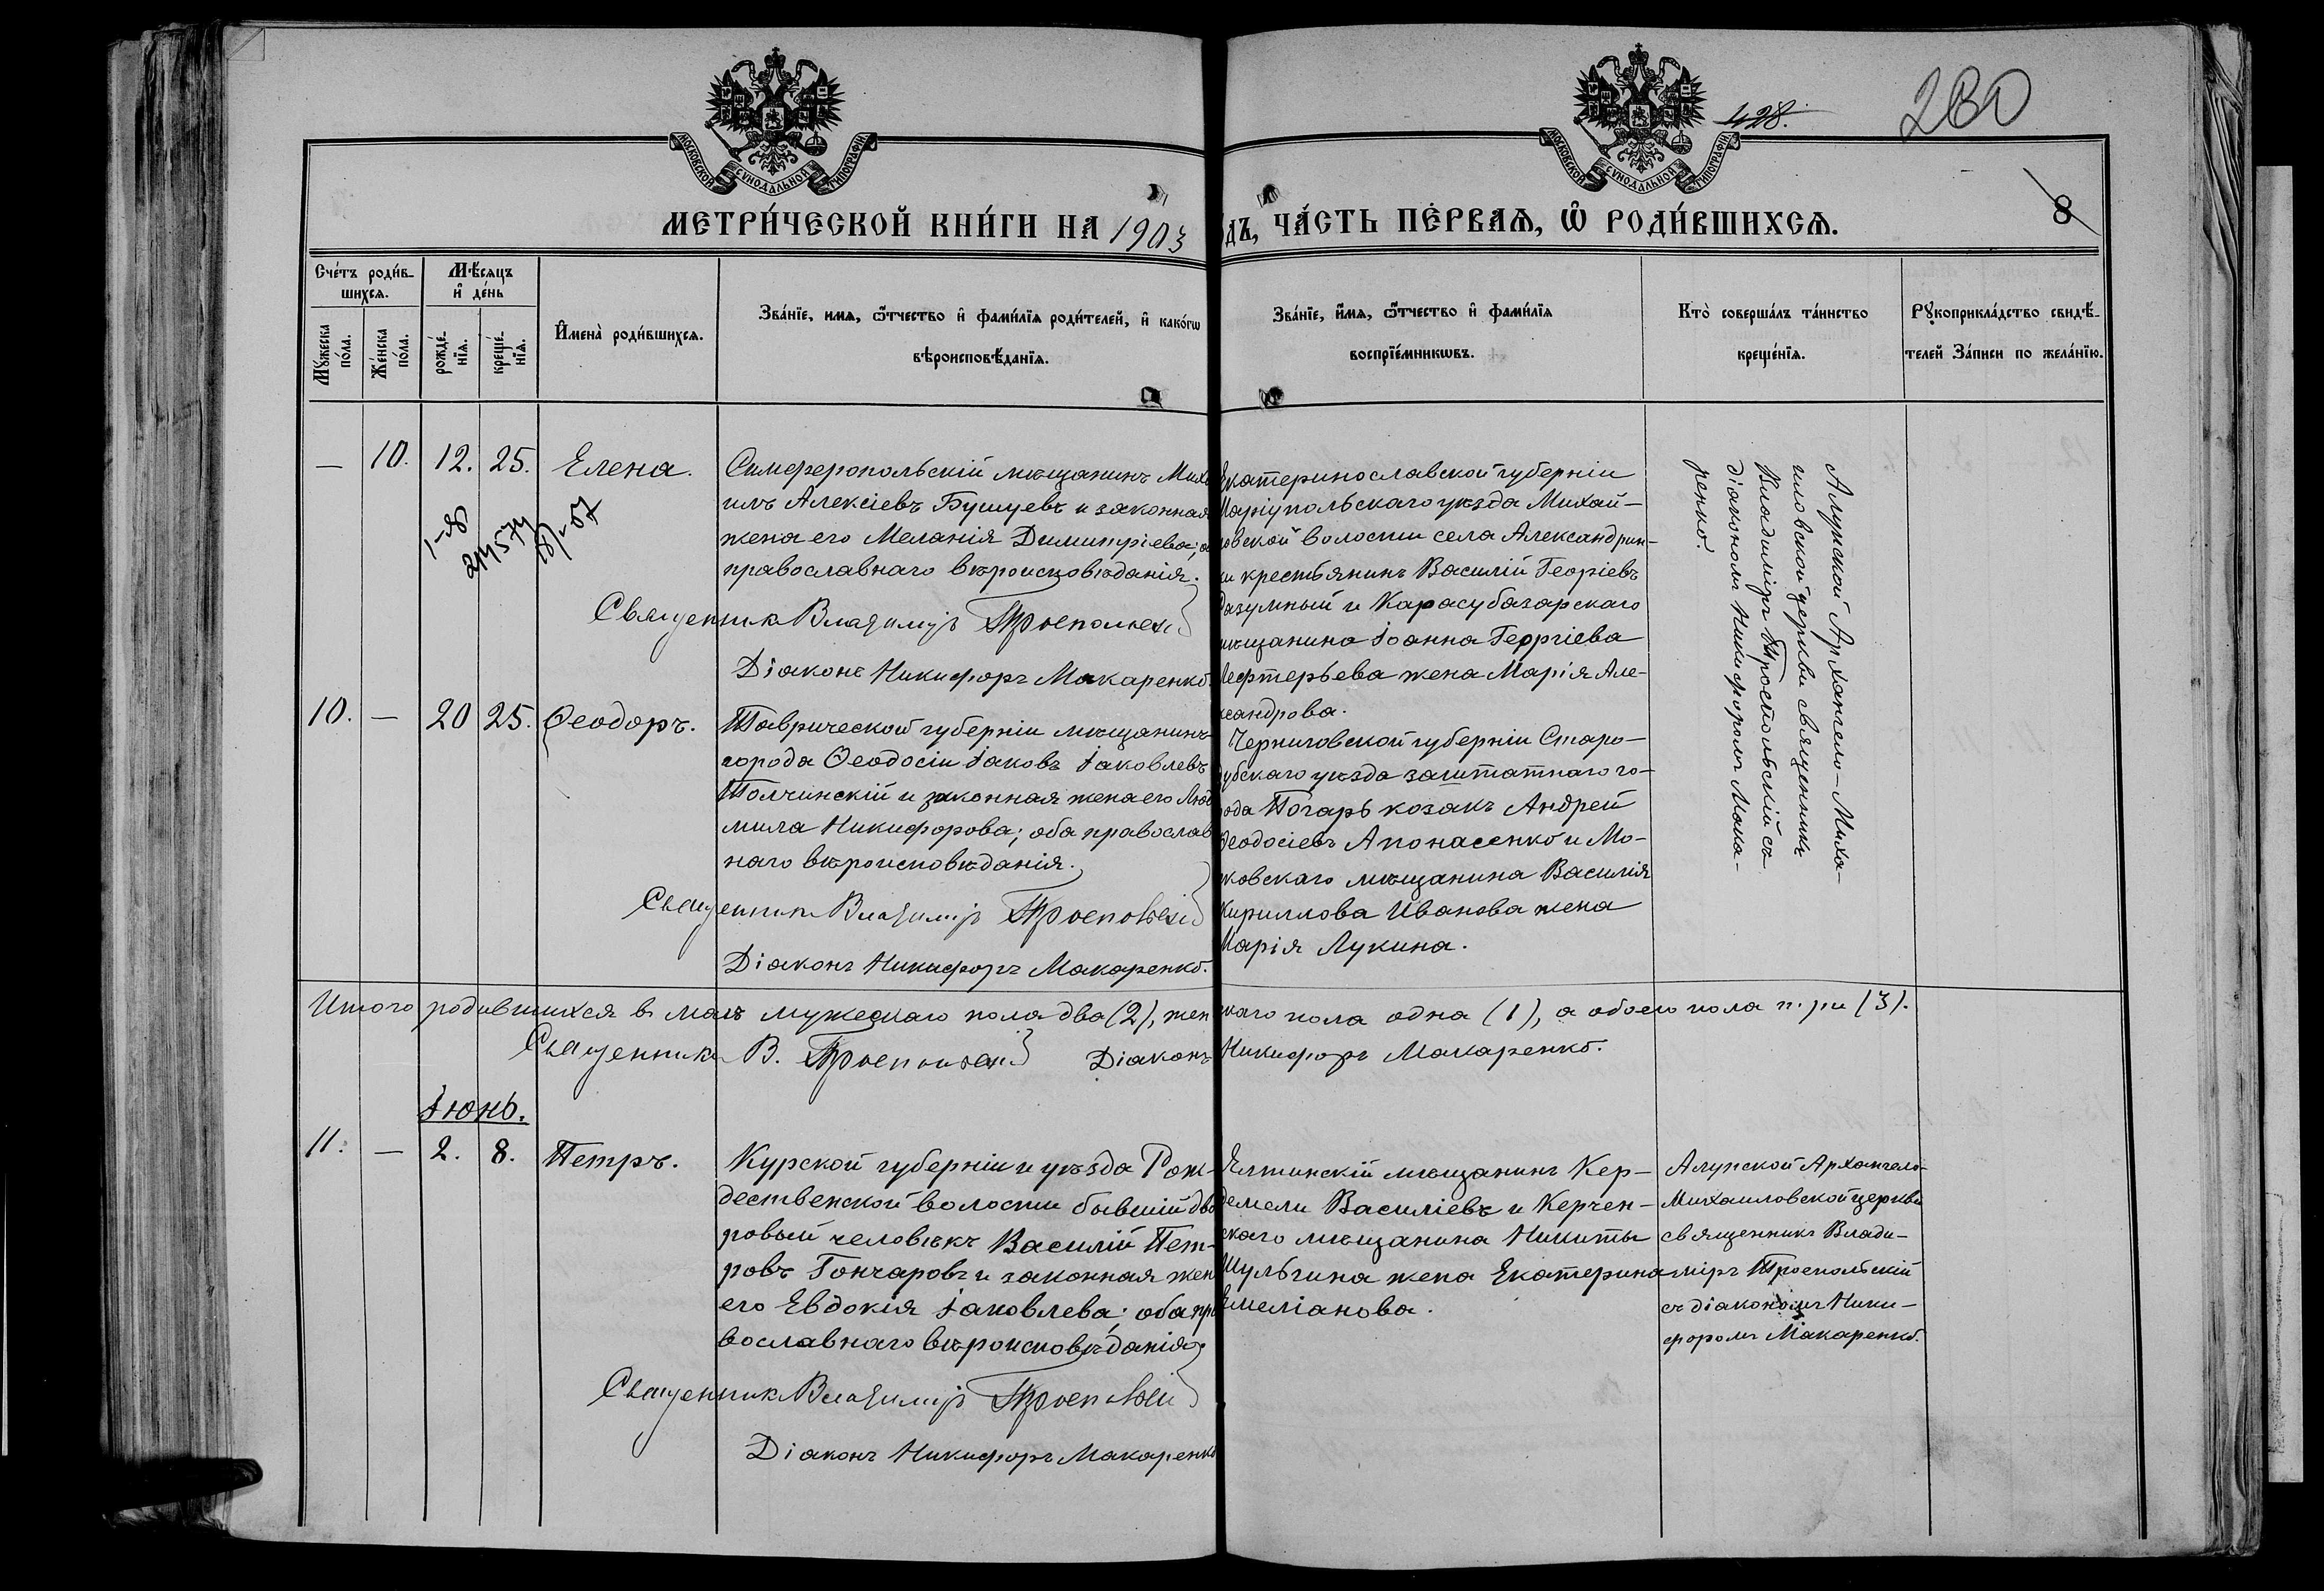 МОСКОВСКОЙ СѴНОДАЛЬНОЙ ТИПОГРАФІИ
МОСКОВСКОЙ СѴНОДАЛЬНОЙ ТИПОГРАФІИ
428.
280
8
МЕТРИ́ЧЕСКОЙ КНИ́ГИ НА 1903
ДЪ, ЧА́СТЬ ПЕ́РВАѦ, Ѡ РОДИ́ВШИХСѦ.
Сче́тъ роди́в-
шихсѧ.
Мꙋжеска
по́ла.
Же́нска
по́ла.
Мѣ́сяцъ
и҆ де́нь
рожде́-
нїѧ.
креще́-
нїѧ.
И҆мена̀ роди́вшихсѧ.
Зва́нїе, имѧ, ѻ҆́тчество и҆ фами́лїѧ роди́телей, и҆ како́гѡ
вѣроисповѣ́данїѧ.
Зва́нїе, и҆́мѧ, ѻ҆́тчество и҆ фами́лїѧ
воспрїе́мникѡвъ.
Кто̀ соверша́лъ та́инство
креще́нїѧ.
Рꙋкоприкла́дство свидѣ́-
телей За́писи по жела́нїю.
— 10. 12. 25. Елена.
Симферопольскій мѣщанинъ Миха
илъ Алексіевъ Бушуевъ и законная
жена его Меланія Димитріева; о
православнаго вѣроисповѣданія.
Священникъ Владиміръ Троепольскій
Діаконъ Никифоръ Макаренко.
Екатеринославской губерніи
Маріупольскаго уѣзда Михай-
ловской волости села Александрин-
ки крестьянинъ Василій Георгіевъ
Разумный и Карасубазарскаго
мѣщанина Іоанна Георгіева
Лефтерьева жена Марія Але-
ксандрова.
Алупской Архангело-Миха-
иловской церкви священникъ
Владиміръ Троепольскій съ
діакономъ Никифоромъ Мака-
ренко.
10. — 20 25. Ѳеодоръ.
Таврической губерніи мѣщанинъ
города Ѳеодосіи Іаковъ Іаковлевъ
Толчинскій и законная жена его Люд
мила Никифорова; оба православ
наго вѣроисповѣданія.
Священникъ Владиміръ Троепольскій
Діаконъ Никифоръ Макаренко.
Черниговской губерніи Старо-
дубскаго уѣзда заштатнаго го-
рода Погаръ козакъ Андрей
Ѳеодосіевъ Апонасенко и Мо-
жковскаго мѣщанина Василія
Кириллова Иванова жена
Марія Лукина.
Итого родившихся въ маѣ мужескаго пола два (2), жен
скаго пола одна (1), а обоего пола три (3).
Священникъ В. Троепольскій Діаконъ Никифоръ Макаренко.
Іюнь.
11. — 2. 8. Петръ.
Курской губерніи и уѣзда Рож-
дественской волости бывшій дво
ровый человѣкъ Василій Пет-
ровъ Гончаровъ и законная жен
его Евдокія Іаковлева; оба пра
вославнаго вѣроисповѣданія.
Священникъ Владиміръ Троепольскій
Діаконъ Никифоръ Макаренко
Ялтинскій мѣщанинъ Кер-
демели Василіевъ и Керчен-
скаго мѣщанина Никиты
Шульгина жена Екатерина
Емеліанова.
Алупской Архангело-
Михаиловской церкви
священникъ Влади-
міръ Троепольскій
съ діакономъ Ники-
форомъ Макаренко.